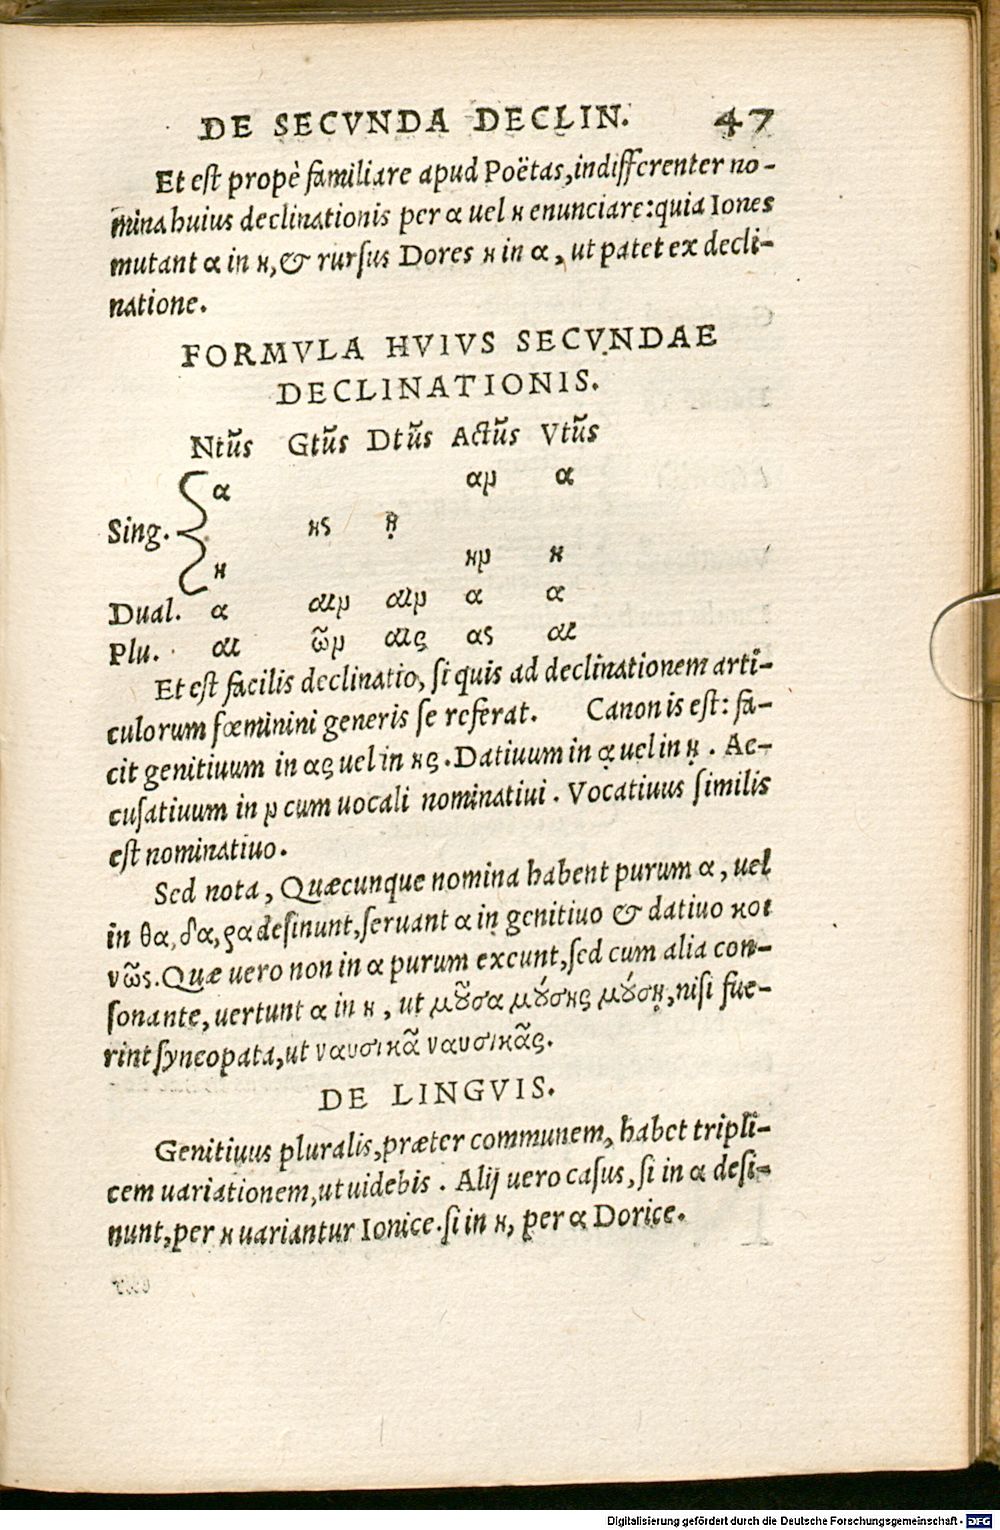 DE SECVNDA DECLIN. 47
Et est propè familiare apud Poëtas, indifferenter no-
mina huius declinationis per α uel η enunciare: quia Iones
mutant α in η, & rursus Dores η in α, ut patet ex decli-
natione.
FORMVLA HVIVS SECVNDAE
DECLINATIONIS.
Ntũs Gtũs Dtũs Actũs Vtũs
α αν α
Sing. ης ῃ
η ην η
Dual. α αιν αιν α α
Plu. αι ῶν αις ας αι
Et est facilis declinatio, si quis ad declinationem arti-
culorum fœminini generis se referat. Canon is est: fa-
cit genitiuum in ας uel in ης. Datiuum in ᾳ uel in ῃ. Ac-
cusatiuum in ν cum uocali nominatiui. Vocatiuus similis
est nominatiuo.
Sed nota, Quæcunque nomina habent purum α, uel
in θα, δα, ρα desinunt, seruant α in genitiuo & datiuo κοι
νῶς. Quæ uero non in α purum exeunt, sed cum alia con-
sonante, uertunt α in η, ut μοῦσα μούσης μούσῃ, nisi fue-
rint syncopata, ut ναυσικᾶ ναυσικᾶς.
DE LINGVIS.
Genitiuus pluralis, præter communem, habet tripli-
cem uariationem, ut uidebis. Alij uero casus, si in α desi-
nunt, per η uariantur Ionice. si in η, per α Dorice.
Digitalisierung gefördert durch die Deutsche Forschungsgemeinschaft - DFG